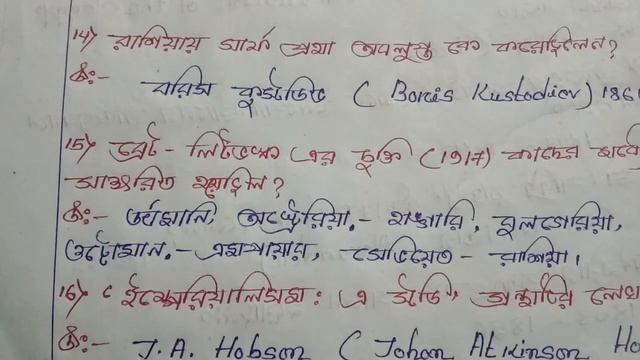 14) রাশিয়ায় সার্ফ প্রথা অবলুপ্ত কে করেছিলেন?
উঃ- বরিস কুস্টডিভ ( Boris Kustodiev) 186
15) ব্রেট - লিটভস্ক এর চুক্তি (1917) কাদের মধ্যে
সাক্ষরিত হয়েছিল?
উঃ- জার্মানি, অস্ট্রেরিয়া.- হাঙ্গারি, বুলগেরিয়া,
অটোমান.- এমপায়ার, সোভিয়েত - রাশিয়া।
16) " ইম্পেরিয়ালিজম: এ স্টাডি" গ্রন্থটির লেখ
উঃ- J. A. Hobson ( Johon Atkinson Ho